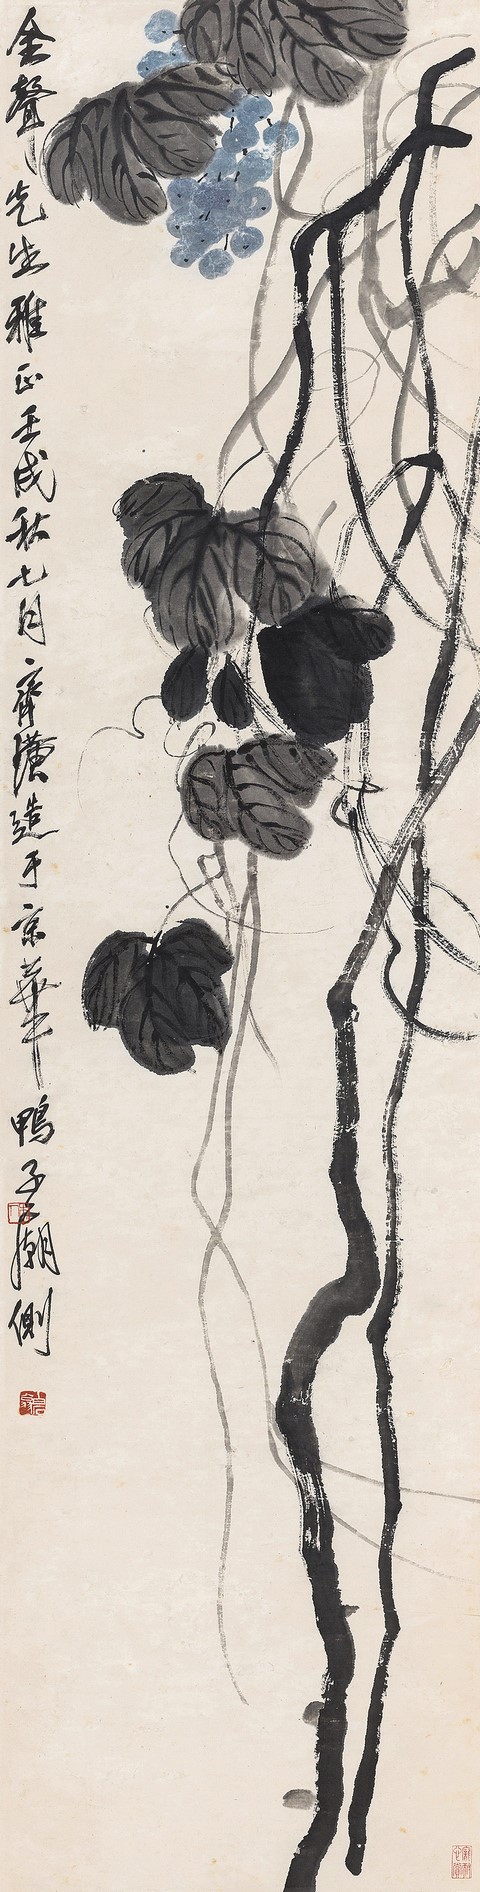 金聲先生雅正壬戌秋七月齊璜造于京華鴨子潮側